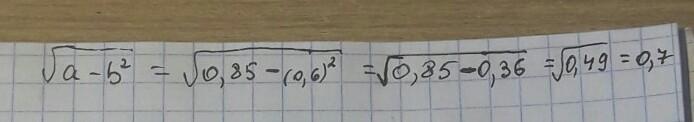 √a - b² = √0,85 - (0,6)² = √0,85 - 0,36 = √0,49 = 0,7